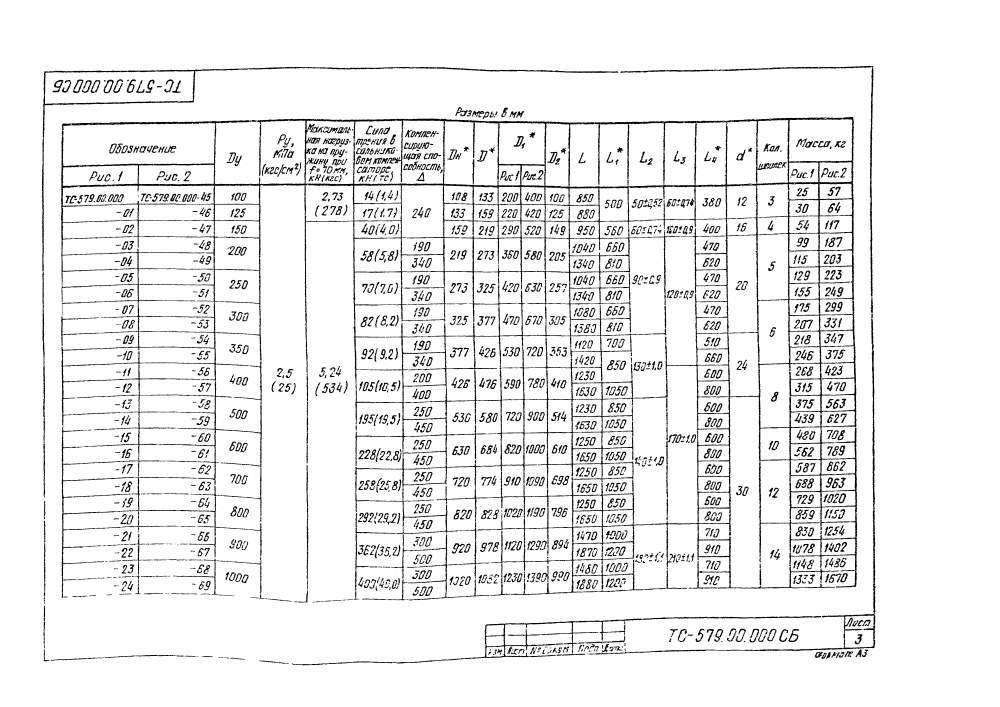 ТС-579.00.000СБ
Размеры в мм
Обозначение Dу Ру, мПа (кгс/см²) Максимальная нагрузка на пружину при f=70мм, кН(кгс) Сила трения в сальниковом компенсаторе, кН(тс) Компенсирующая способность, Δ Dн* D* D₁* D₂* L L₁* L₂ L₃ L₄* d* Кол. шпилек Масса, кг
Рис. 1 Рис. 2 Рис.1 Рис.2 Рис.1 Рис.2
ТС-579.00.000 ТС-579.00.000-45 100 2,5 (25) 2,73 (278) 14(1,4) 240 108 133 200 400 100 850 500 50±0,52 60±0,74 380 12 3 25 57
-01 -46 125 17(1,7) 133 159 220 420 125 880 30 64
-02 -47 150 5,24 (534) 40(4,0) 159 219 290 520 149 950 560 60±0,74 400 16 4 54 117
-03 -48 200 58(5,8) 190 219 273 360 580 205 1040 660 90±0,9 120±0,9 470 20 5 99 187
-04 -49 340 1340 810 620 115 203
-05 -50 250 70(7,0) 190 273 325 420 630 257 1040 660 470 129 223
-06 -51 340 1340 810 620 155 249
-07 -52 300 82(8,2) 190 325 377 470 670 305 1080 660 470 6 175 299
-08 -53 340 1380 810 620 207 331
-09 -54 350 92(9,2) 190 377 426 530 720 353 1120 700 130±1,0 510 24 218 347
-10 -55 340 1420 850 660 246 375
-11 -56 400 105(10,5) 200 426 476 590 780 410 1230 170±1,0 600 8 268 423
-12 -57 400 1630 1050 800 315 470
-13 -58 500 195(19,5) 250 530 580 720 900 514 1230 850 600 30 375 563
-14 -59 450 1630 1050 800 439 627
-15 -60 600 228(22,8) 250 630 684 820 1000 610 1250 850 600 10 480 708
-16 -61 450 1650 1050 800 562 789
-17 -62 700 258(25,8) 250 720 774 910 1090 698 1250 850 600 12 587 862
-18 -63 450 1650 1050 800 688 963
-19 -64 800 292(29,2) 250 820 828 1020 1190 796 1250 850 600 729 1020
-20 -65 450 1650 1050 800 859 1150
-21 -66 900 362(36,2) 300 920 978 1120 1290 894 1470 1000 210±1,1 710 14 830 1254
-22 -67 500 1870 1200 910 1078 1402
-23 -68 1000 400(40,0) 300 1020 1082 1230 1390 990 1480 1000 710 1148 1486
-24 -69 500 1880 1200 910 1333 1670
ТС-579.00.000 СБ
Лист
3
Изм Лист № докум Подп Дата
Формат А3